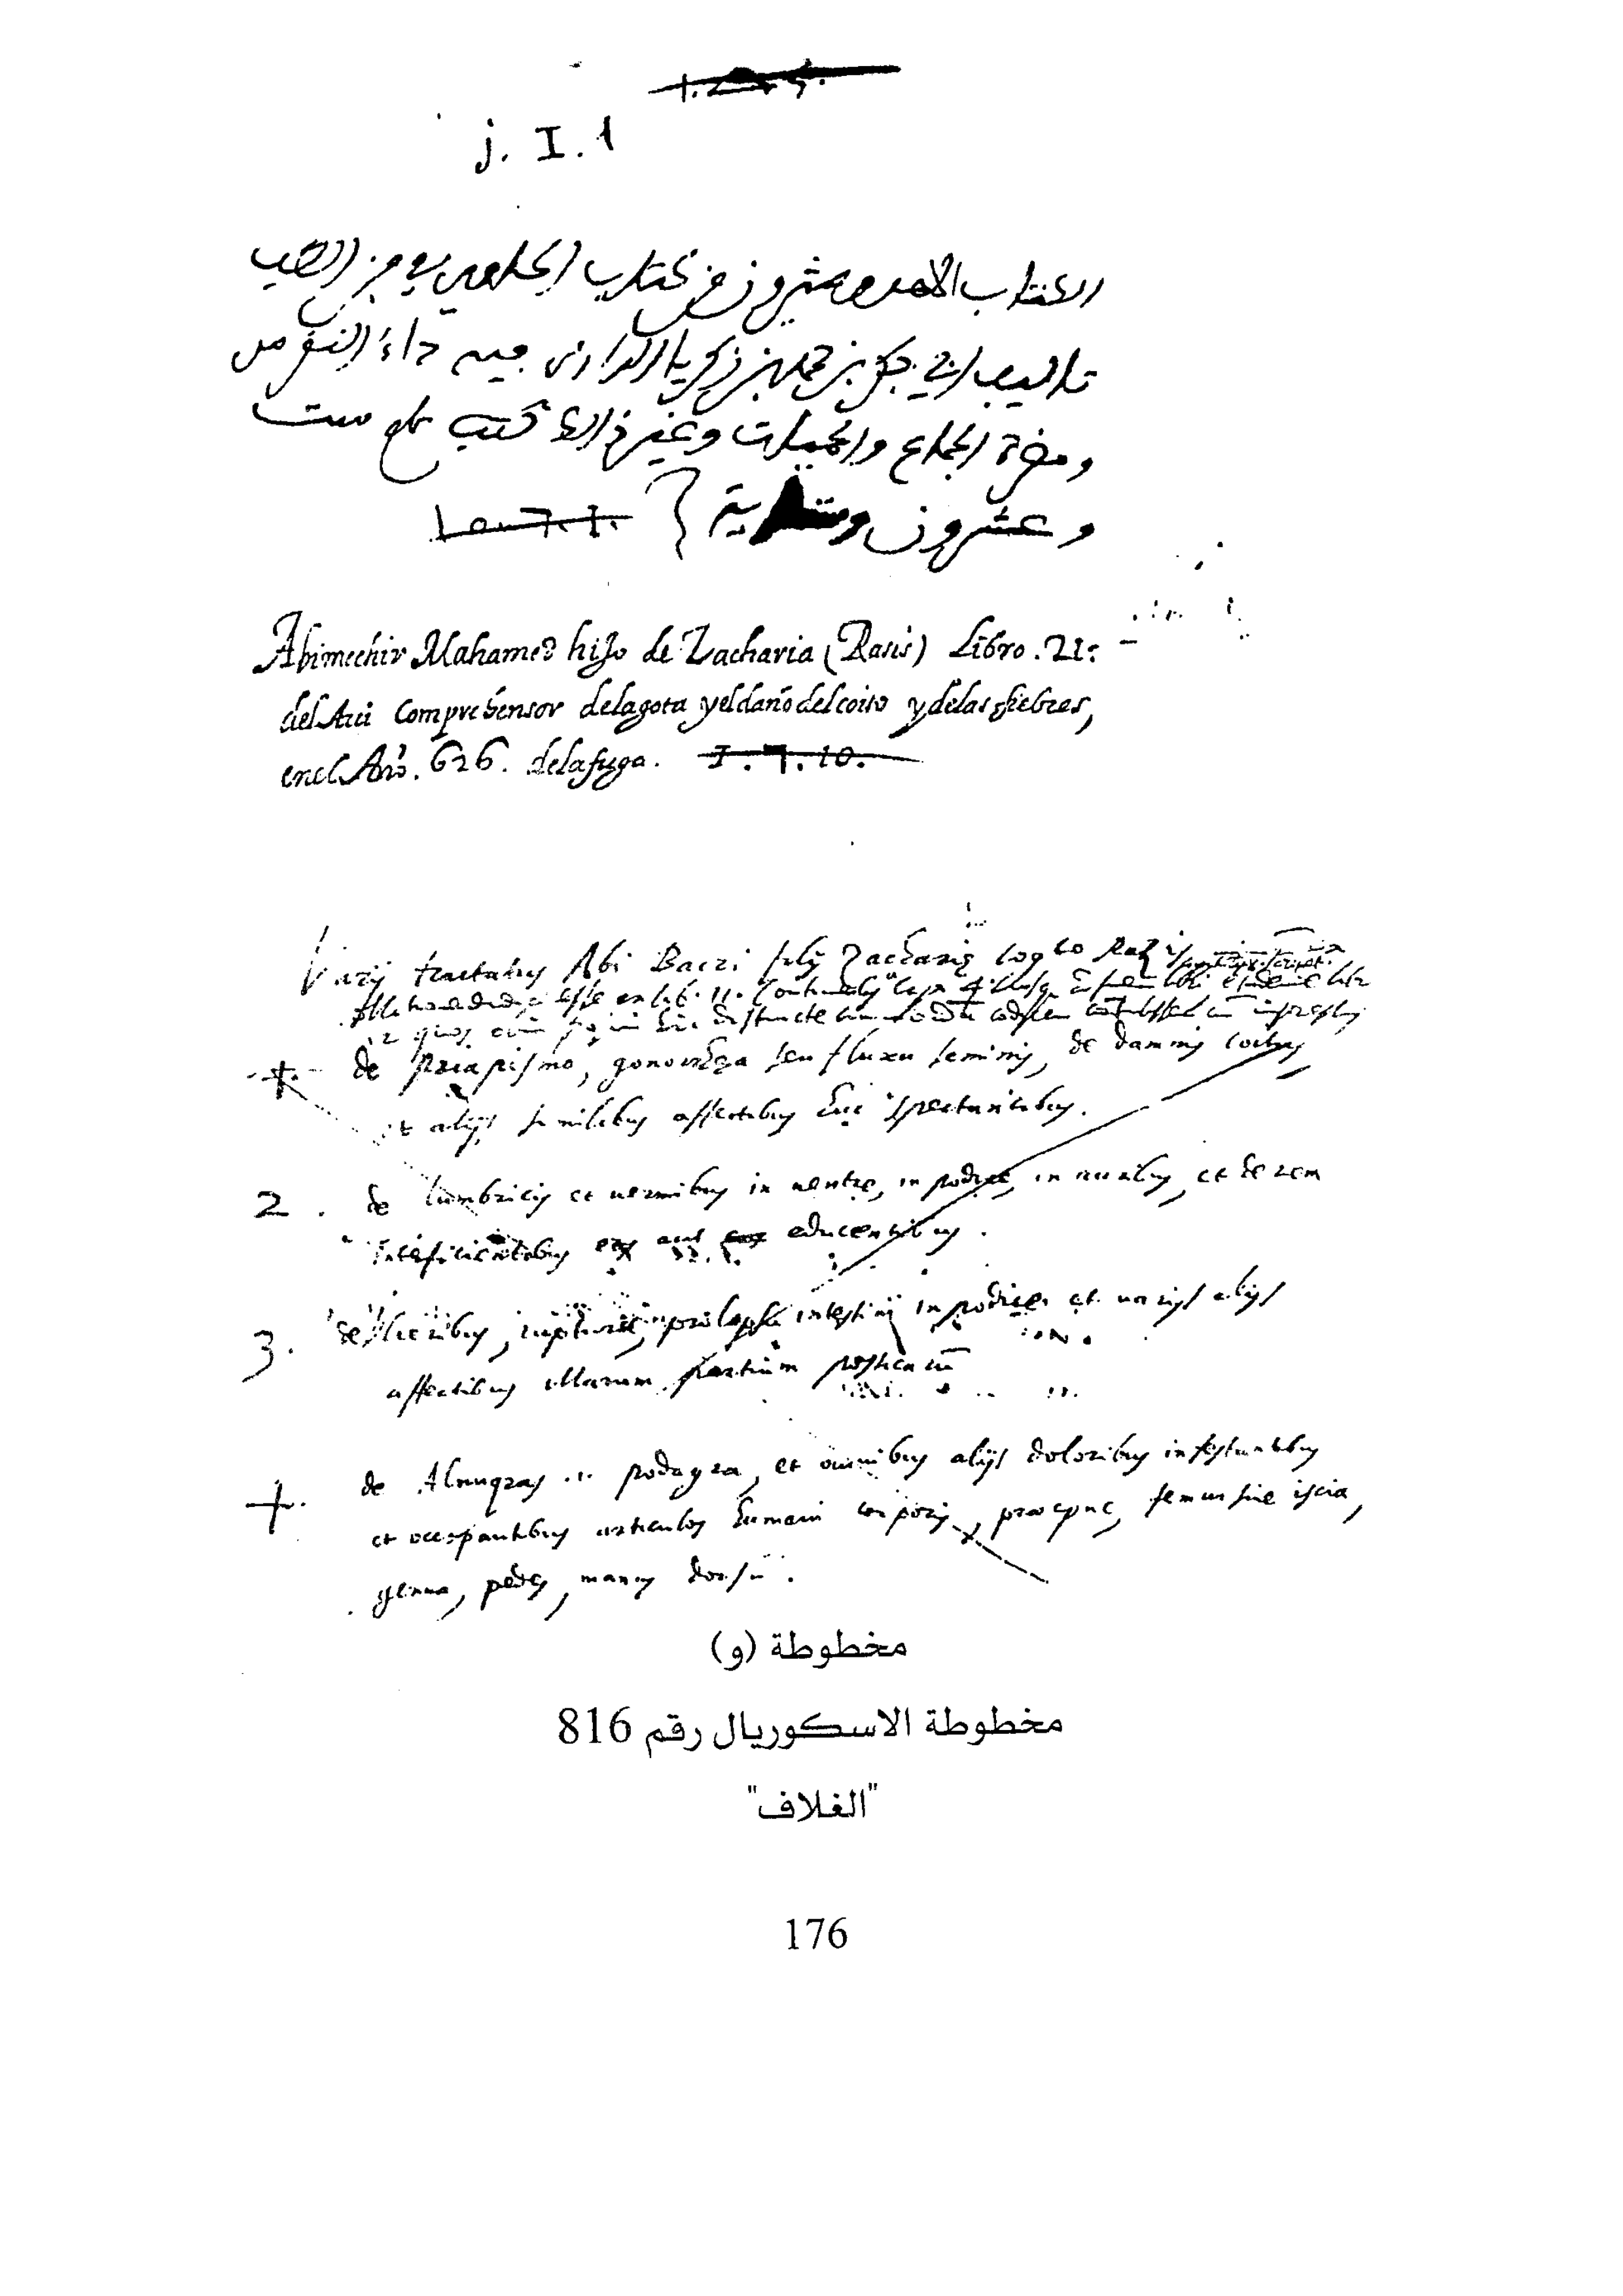 j. I. 1
الكتاب الاحد وعشرون من كتاب الحاوي في من الطب
تاليف ابي بكر بن محمد بن زكريا الرازي فيه داء النقرس
ومضرة الجماع والحميات وغير ذالك كتب عام ست
وعشرون وستماية
Abimechir Mahamed hijo de Zacharia (Rasis) Libro. 21:
del Aui Comprehensor dela gota y el daño del coito y delas fiebres,
en el Año. 626. dela fuga. I. 7. 10.
Varij tractatus Abi Bacri filij Zacharię
de priapismo, gonorrhęa seu fluxu seminis, de damnis coitus,
et alijs similibus affectibus huc spectantibus.
2. de lumbricis et uermibus in uentre, in podice, in auribus, et de rem
interficientibus eos aut educentibus.
3. de ulceribus, rupturis, prolapsu intestini in podice et uarijs alijs
affectibus illarum partium
de Alnuqras podagra, et omnibus alijs doloribus infestantibus
et occupantibus articulos humani corporis, præcipue, femur siue iscia,
genua, pedes, manus dorsū.
مخطوطة (و)
مخطوطة الاسكوريال رقم 816
"الغلاف"
176